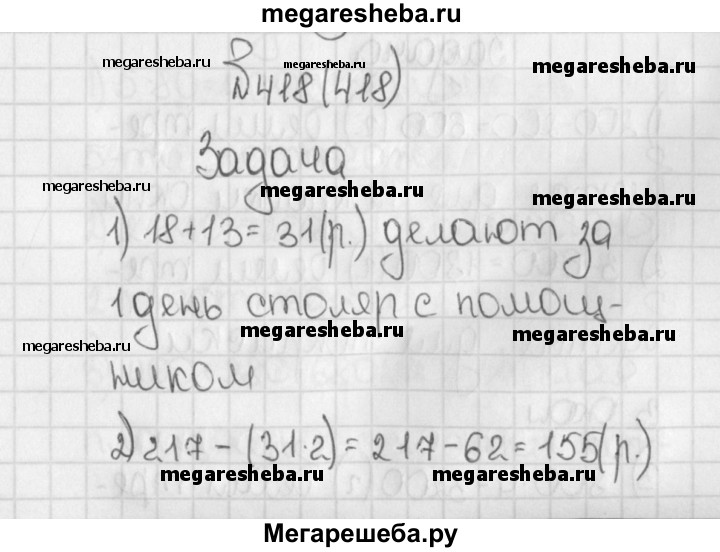 megaresheba.ru
megaresheba.ru megaresheba.ru megaresheba.ru
№418(418)
Задача
megaresheba.ru megaresheba.ru megaresheba.ru
1) 18+13=31(р.) делают за
1 день столяр с помощ-
megaresheba.ru megaresheba.ru megaresheba.ru
ником
2) 217-(31·2)=217-62=155(р.)
megaresheba.ru megaresheba.ru
Мегарешеба.ру